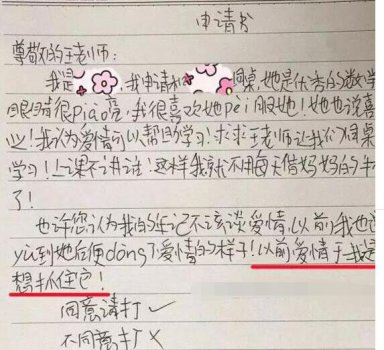 申请书
尊敬的王老师：
我是 ，我申请和 同桌，她是优秀的数学
眼睛很piào亮，我很喜欢她pèi服她！她也说喜
业！我认为爱情可以帮助学习，求求王老师让我们同桌
学习！上课不讲话！这样我就不用每天借妈妈的手
了！
也许您认为我的年记不该谈爱情，以前我也这
yù到她后便dǒng了爱情的样子！以前爱情于我是
想抓住它！
同意请打✓
不同意打×